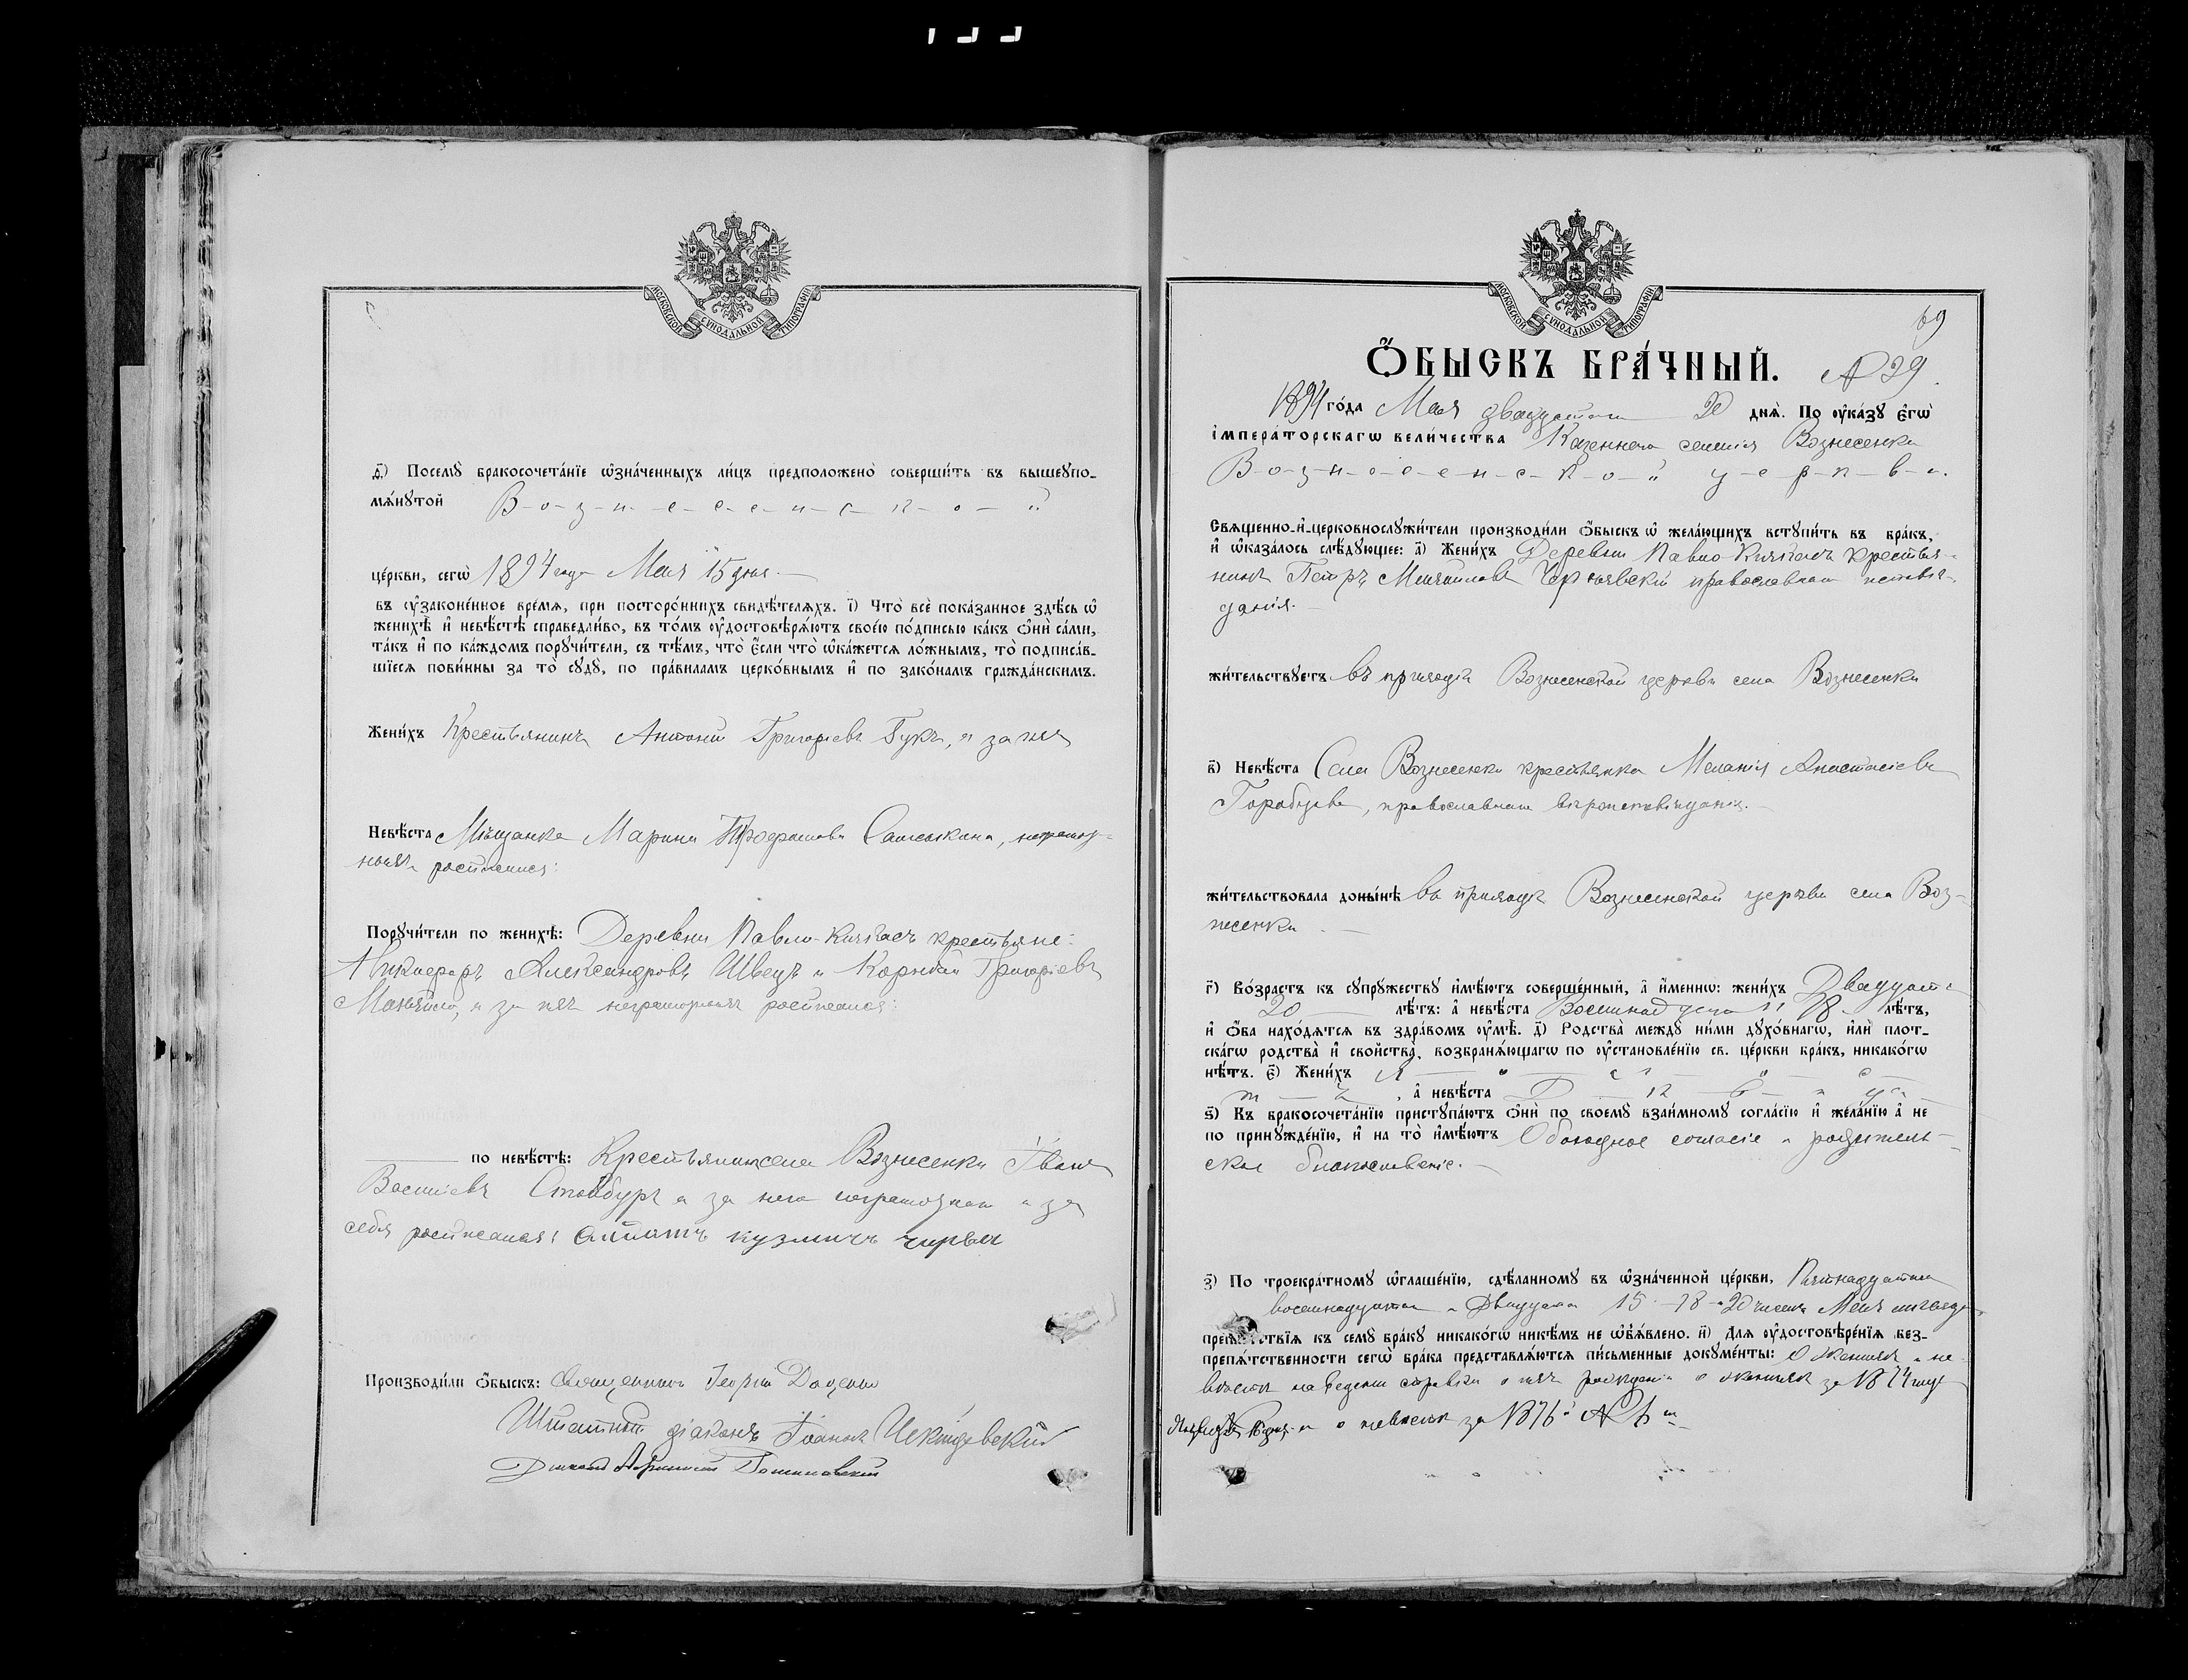 МОСКОВСКОЙ СѴНОДАЛЬНОЙ ТИПОГРАФІИ
Ѳ҃) Посемꙋ̀ бракосочета́нїе ѡ҆зна́ченныхъ ли́цъ предположено̀ соверши́ть въ вышеꙋпо-
мѧ́нꙋтой В-о-з-н-е-с-е-н-с-к-о-й
це́ркви, сегѡ̀ 1894 года Мая 15 дня.
въ ᲂу҆законе́нное вре́мѧ, при посторо́ннихъ свидѣ́телѧхъ. і҃) Что̀ всѐ пока́занное здѣ́сь ѡ҆
женихѣ̀ и҆ невѣ́стѣ справедли́во, въ то́мъ ᲂу҆достовѣрѧ́ютъ свое́ю по́дписью ка́къ ѻ҆нѝ са́ми,
та́къ и҆ по ка́ждомъ порꙋчи́тели, съ тѣ́мъ, что̀ є҆́сли что̀ ѡ҆ка́жетсѧ ло́жнымъ, то̀ подписа́в-
шїесѧ пови́нны за то̀ сꙋдꙋ̀, по пра́виламъ церко́внымъ и҆ по зако́намъ гражда́нскимъ.
Жени́хъ Крестьянинъ Антоній Григорьевъ Гукъ, и за нея
Невѣ́ста Мѣщанка Марина Трофимова неграмот-
ныхъ росписался:
Порꙋчи́тели по женихѣ̀: Деревни Павло-Кичкасъ крестьяне:
Никифоръ Александровъ Швецъ и Корнѣй Григорьевъ
и за нихъ неграмотныхъ росписался:
по невѣ́стѣ: Крестьянинъ села Вознесенки Іванъ
и за него неграмотнаго и за
себя росписался: кузмичъ
Производи́ли ѻ҆́быскъ: Священникъ Георгій
Штатный діаконъ Іоаннъ
МОСКОВСКОЙ СѴНОДАЛЬНОЙ ТИПОГРАФІИ
69
Ѻ҆́БЫСКЪ БРА́ЧНЫЙ. № 29.
1894 го́да Мая двадцатаго 20 днѧ̀. По ᲂу҆ка́зꙋ Є҆гѡ̀
І҆мпера́торскагѡ вели́чества Казеннаго селенія Вознесенки
В-о-з-н-е-с-е-н-с-к-о-й ц-е-р-к-в-и.
Свѧщенно-и҆-церковнослꙋжи́тели производи́ли ѻ҆́быскъ ѡ҆ жела́ющихъ встꙋпи́ть въ бра́къ,
и҆ ѡ҆каза́лось слѣ́дꙋющее: а҃) Жени́хъ Деревни Павло-Кичкасъ крестья-
нинъ Петръ Михайловъ православнаго исповѣ-
данія.
жи́тельствꙋетъ въ приходѣ Вознесенской церкви села Вознесенки
в҃) Невѣ́ста Села Вознесенки крестьянка Меланія Анастасіева
Горобцева, православнаго вѣроисповѣданія.
жи́тельствовала доны́нѣ въ приходѣ Вознесенской церкви села Воз-
несенки
г҃) Во́зрастъ къ сꙋпрꙋ́жествꙋ и҆мѣ́ютъ соверше́нный, а҆ и҆́меннѡ: жени́хъ Двадцати
20 лѣ́тъ: а҆ невѣ́ста 18 лѣ́тъ,
и҆ ѻ҆́ба нахо́дѧтсѧ въ здра́вомъ ᲂу҆мѣ̀. д҃) Родства̀ междꙋ̀ ни́ми дꙋхо́внагѡ, и҆лѝ плот-
ска́гѡ родства̀ и҆ сво́йства, возбранѧ́ющагѡ по ᲂу҆становле́нїю св. це́ркви бра́къ, никако́гѡ
нѣ́тъ. є҃) Жени́хъ х о л о с
т ъ, а҆ невѣ́ста Д ѣ в и ц а
ѕ҃) Къ бракосочета́нїю пристꙋпа́ютъ ѻ҆нѝ по своемꙋ̀ взаи́мномꙋ согла́сїю и҆ жела́нїю а҆ не
по принꙋжде́нїю, и҆ на то̀ и҆мѣ́ютъ Обоюдное согласіе и родитель-
ское благословеніе.
з҃) По троекра́тномꙋ ѡ҆глаше́нїю, сдѣ́ланномꙋ въ ѡ҆зна́ченной це́ркви, Пятнадцатаго
восемнадцатаго и Двадцатаго 15-18-20 числъ Мая
препѧ́тствїѧ къ семꙋ̀ бра́кꙋ никако́гѡ никѣ́мъ не ѡ҆б̾ѧ́влено. и҃) Длѧ ᲂу҆достовѣре́нїѧ без-
препѧ́тственности сегѡ̀ бра́ка представлѧ́ютсѧ пи́сьменные докꙋме́нты: О женихѣ и не-
вѣстѣ наведены справки о ихъ рожденіи о женихѣ за 1874 годъ
и о невѣстѣ за 1876 №